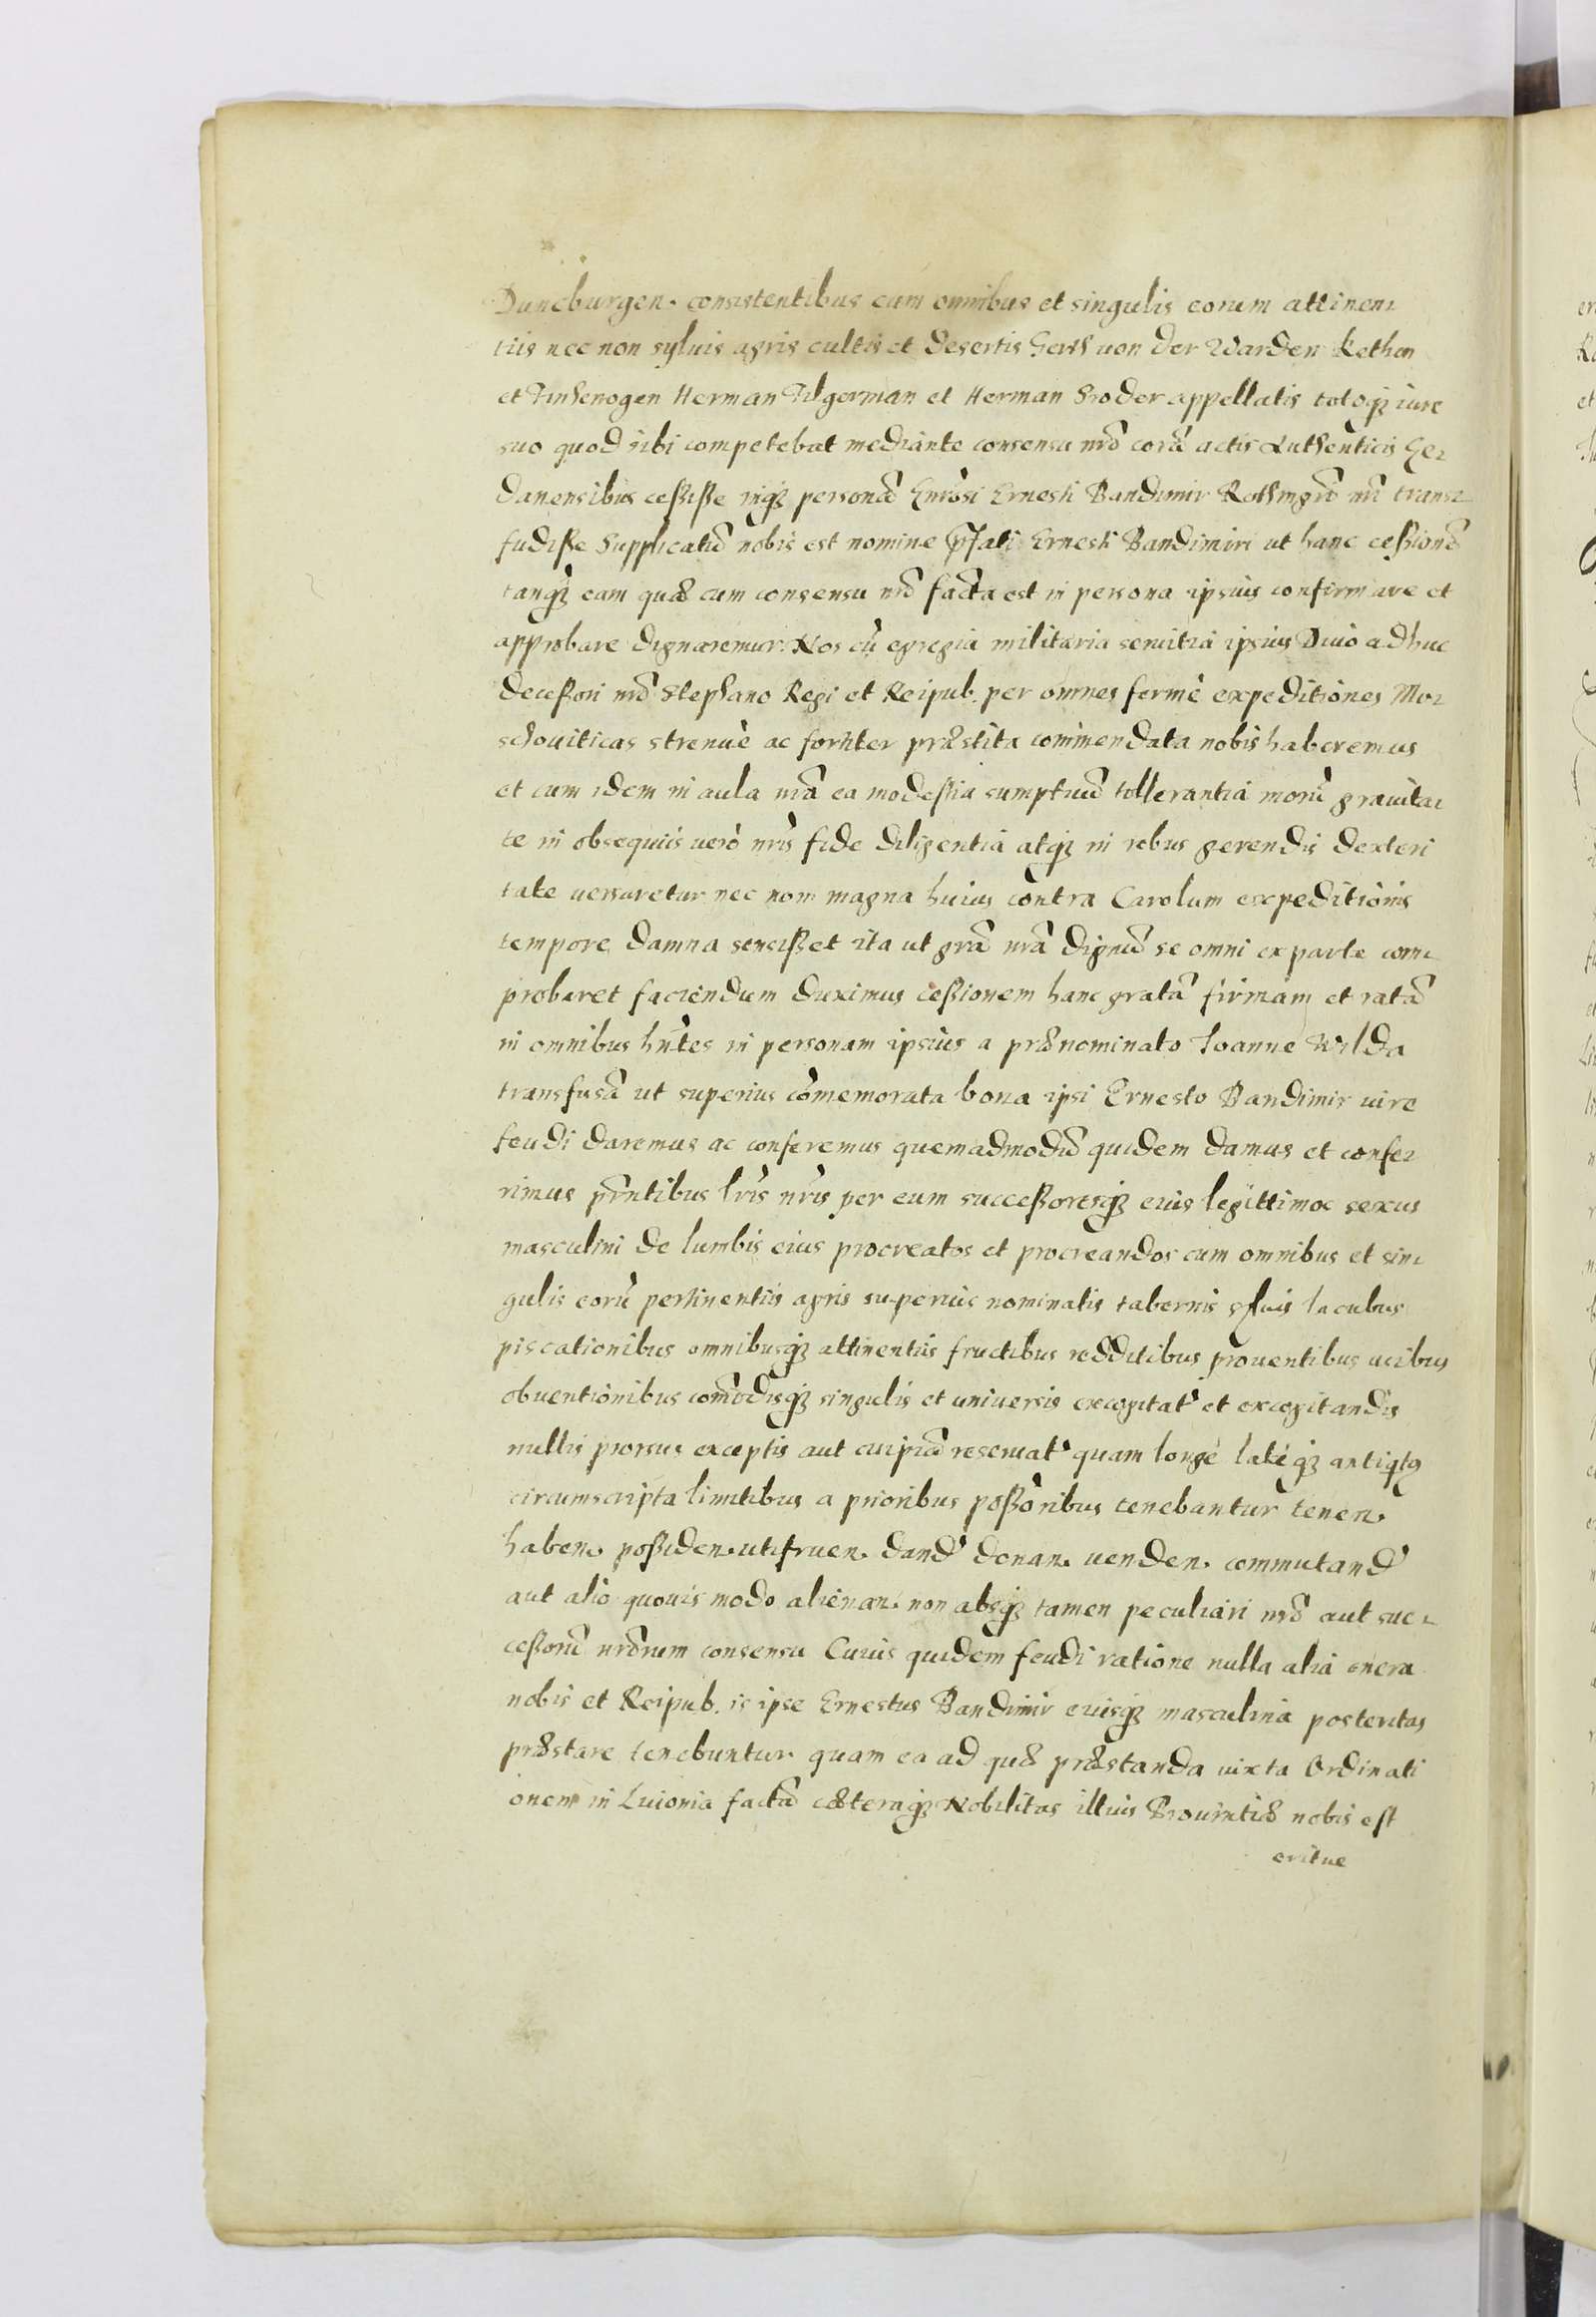 Duneburgen. consistentibus cum omnibus et singulis eorum attinen-
tiis nec non syluis agris cultis et desertis Gerth von der Warden Kethen
et Herman Tilgerman et Herman appellatis totoqȝ iure
suo quod sibi competebat mediante consensu nrõ corã actis Authenticis Ge-
danensibus cessisse inqȝ personã Gnrosi Ernesti Bandimir Rothmgrĩ nri trans-
fudisse Supplicatũ nobis est nomine pfati Ernesti Bandimiri ut hanc cessionẽ
tanqȝ eam quæ cum consensu nrõ facta est in persona ipsius confirmare et
approbare dignaremur. Nos cũ egregia militaria seruitia ipsius Diuo adhuc
decessori nrõ Stephano Regi et Reipub. per omnes fermè expeditiones Mo-
schouiticas strenuè ac fortiter præstita commendata nobis haberemus
et cum idem in aula nrã ea modestia sumptuũ tollerantia morũ grauita-
te in obsequiis uerò nris fide diligentia atqȝ in rebus gerendis dexteri
tate uersaretur nec non magna huius contra Carolum expeditionis
tempore damna sensisset ita ut grã nrã dignũ se omni ex parte com-
probaret faciendum duximus cessionem hanc gratã firmam et ratã
in omnibus hñtes in personam ipsius a prænominato Ioanne Wilda
transfusã ut superius cõmemorata bona ipsi Ernesto Bandimir iure
feudi daremus ac conferemus quemadmodũ quidem damus et confe-
rimus pñtibus lris nris per eum successoresqȝ eius legittimos sexus
masculini de lumbis eius procreatos et procreandos cum omnibus et sin-
gulis eorũ pertinentiis agris superius nominatis tabernis syluis lacubus
piscationibus omnibusqȝ attinentiis fructibus redditibus prouentibus usibus
obuentionibus com̃odisqȝ singulis et uniuersis excogitat' et excogitandis
nullis prorsus exceptis aut cuipiã reseruat' quam longè latèqȝ antiqtg
circumscripta limitibus a prioribus possõribus tenebantur tenen.
haben. possiden. utifruen. dand' donan. uenden. commutand'
aut alio quouis modo alienan. non absqȝ tamen peculiari nrõ aut suc-
cessorũ nrõrum consensu Cuius quidem feudi ratione nulla alia onera
nobis et Reipub. is ipse Ernestus Bandimir eiusqȝ masculina posteritas
præstare tenebuntur quam ea ad quæ præstanda iuxta Ordinati
onem in Liuonia factã cæteraqȝ Nobilitas illius Prouintiæ nobis est
eritue